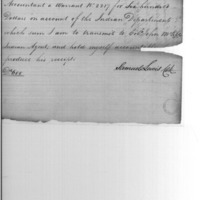 Accountant a Warrant No 2217 for Six hundred
Dollars on account of the Indian Department
which sum I am to transmit to John
Indian Agent and hold myself accountable
produce his receipt
Samuel Lewis